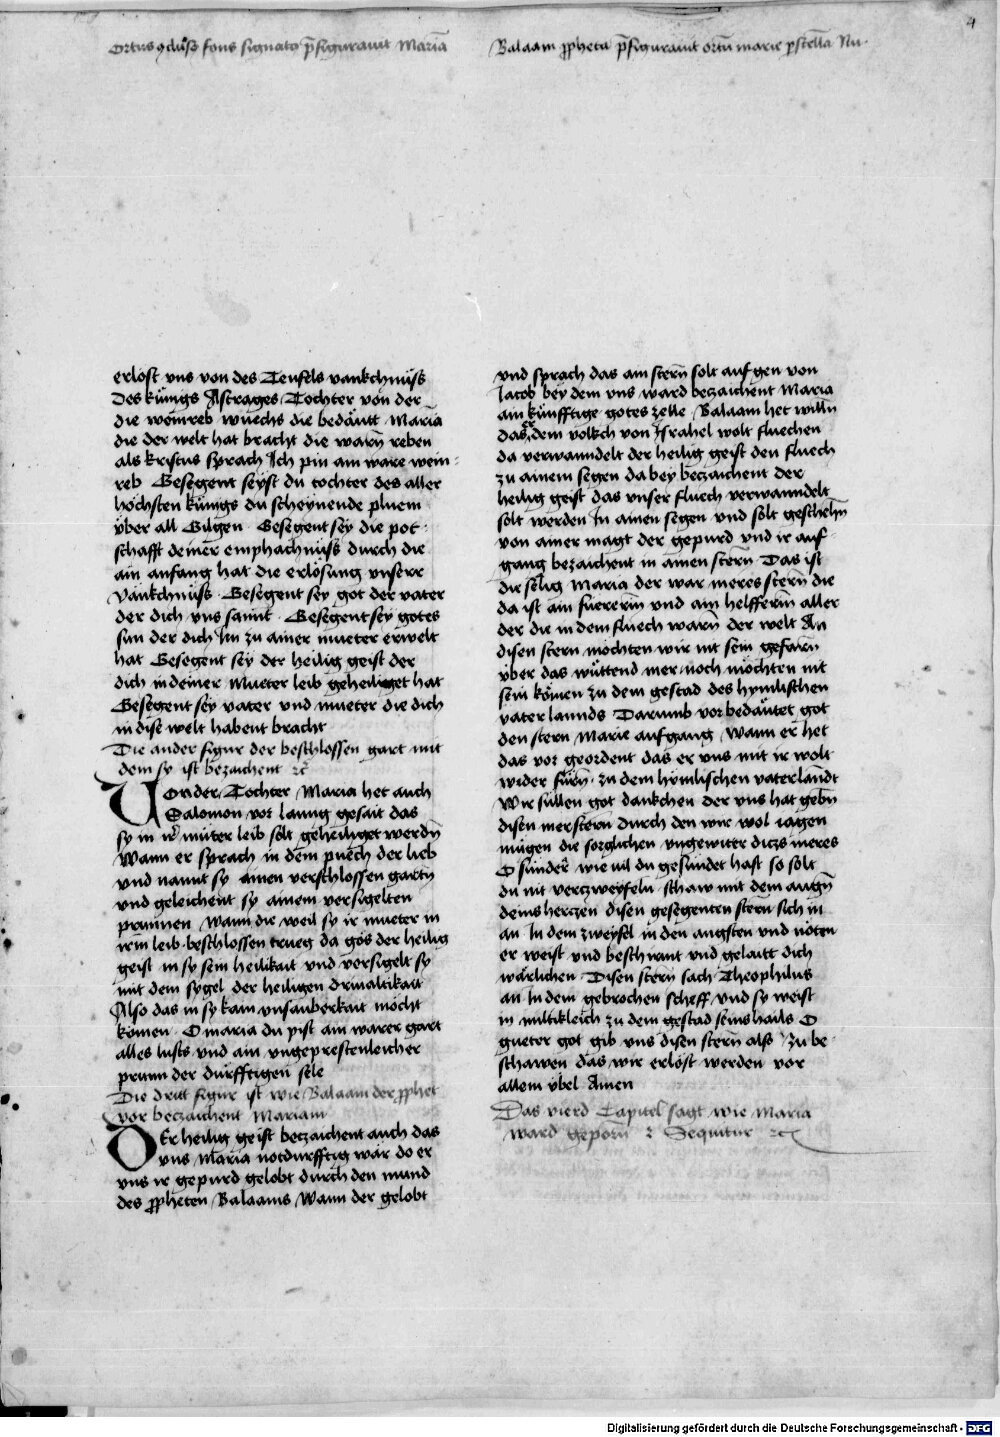 4
Ortus ꝯclus9 fons signat9 p̄figurauit Mariā
erlost vns von des Teufels vankchnüss
Des künigs Astrages Tochter von der
die weinreb wuechs die bedäutt Maria
die der welt hat bracht die warn̄ reben
als kristus sprach Ich pin ain ware wein-
reb Gesegent seyst du tochter des aller
höchsten künigs du scheynende pluem
vber all Gilgen · Gesegent sey die pot-
schafft deiner emphachnüss durch die
ain anfang hat die erlösung vnserr
vänkchnüss · Gesegent sey got der vater
der dich vns sannt · Gesegent sey gotes
sun der dich Im zu ainer mueter erwelt
hat Gesegent sey der heilig geist der
dich in deiner Mueter leib geheiliget hat
Gesegent sey vater vnd mueter die dich
in dise welt habent bracht
Die ander figur der beschlossen gart mit
dem sy ist bezaichent ꝛc̄
Von der Tochter Maria het auch
Salomon vor lanng gesait das
sy in ir müter leib solt geheiliget werdn̄
Wann er sprach in dem puech der lieb
vnd nannt sy ainen verschlossen gartn
vnd geleichent sy ainem versigelten
prunnen Wann die weil sy ir mueter in
irm leib beschlossen trueg da gos der heilig
geist in sy sein heilikait vnd versigelt sy
mit dem sygel der heiligen driualtikait
Also das in sy kain vnsauberkait mocht
komen · O maria du pist ain warer gart
alles lusts vnd ain vngeprestenleicher
prunn der dürfftigen sele
Die dritt figur ist wie Balaam der ꝓphet
vor beczaichent Mariam
Der heilig geist beczaichent auch das
vns Maria notdurfftig wär do er
vns ir gepurd gelobt durch den mund
des ꝓpheten Balaams Wann der gelobt
Balaam ꝓpheta p̄figurauit ortū marie ꝑ stellā Nu·
vnd sprach das ain stern̄ solt auf gen von
Jacob bey dem vns ward beczaichent Maria
ain künfftige gotes zelle Balaam het willn
das er dem volkch von Israhel wolt fluechen
da verwanndelt der heilig geist den fluech
zu ainem segen da bey beczaichent der
heilig geist das vnser fluech verwanndelt
solt werden In ainen segen vnd solt geschehn̄
von ainer magt der gepurd vnd ir auf-
gang bezaichent in ainen stern̄ Das ist
die selig Maria der war meres stern̄ die
da ist ain fuererin vnd ain helfferin aller
der die in dem fluech warn̄ der welt An
disen stern möchten wir nit sein gefarn̄
vber das wüttend mer noch möchten nit
sein komen zu dem gestad des hymlischen
vater lannds Darumb vorbedäutet got
den stern Marie aufgang Wann er het
das vor geordent das er vns mit ir wolt
wider fürn̄ zu dem hymlischen vaterlandt
Wir süllen got dankchen der vns hat gebn̄
disen merstern durch den wir wol iagen
mügen die sorglichen vngewiter diczs meres
O sünder wie uil du gesündet hast so solt
du nit verczweyfeln schaw mit dem augn̄
deins herczen disen gesegenten stern̄ sich in
an In dem zweyfel in den angsten vnd nöten
er weist vnd beschirmt vnd gelaitt dich
wärlichen Disen stern sach Theophilus
an In dem gebrochen scheff vnd sy weist
in miltikleich zu dem gestad seins hails O
gueter got gib vns disen stern also zu be-
schawen das wir erlöst werden vor
allem vbel Amen
Das vierd Capitel sagt wie Maria
ward geporn̄ ꝛ Sequitur ꝛc
Digitalisierung gefördert durch die Deutsche Forschungsgemeinschaft - DFG